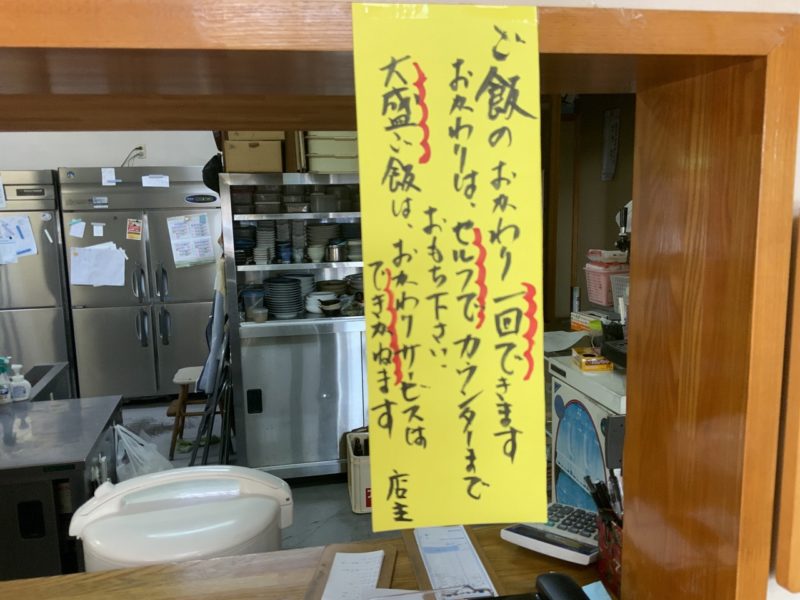 ご飯のおかわり一回できます
おかわりは、セルフでカウンターまで
おもち下さい。
大盛ご飯は、おかわりサービスは
できかねます
店主